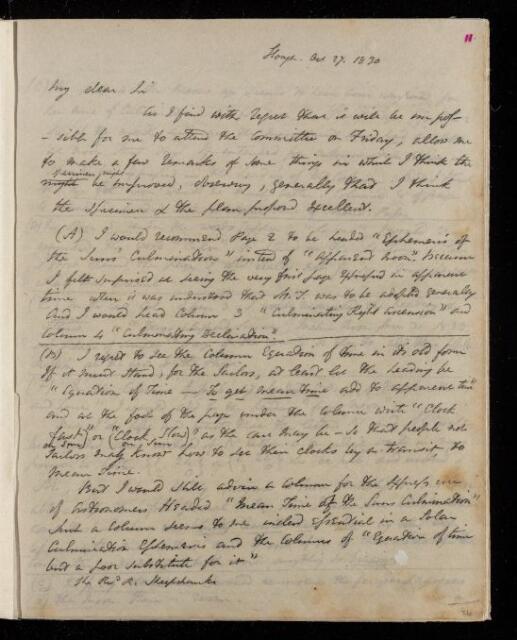 11.
Slough. Oct 27. 1830
My dear Sir
As I find with regret that it will be impos-
-sible for me to attend the Committee on Friday, allow me
to make a few remarks of some things in which I think the
specimen might
might be improved, observing, generally that I think
the specimen & the plan proposed excellent.
(A) I would recommend Page 2 to be headed "Ephemeris of
the Sun's Culmination" instead of "Apparent Noon". Because
I felt surprised at seeing the very first page up in apparent
time when it was understood that M. T. was to be adopted generally
And I would head Column 3 "Culminating Right Ascension" and
Column 4 "Culminating Declination".
(B) I regret to see the Column Equation of Time in its old form
If it must stand, for the Sailors, at least let the heading be
"Equation of Time — To get mean time add to apparent time"
and at the foot of the page under the column write "Clock
fast" or "Clock Slow" as the case may be - so that people not
Sailors may know how to set their clocks by a transit, to
mean Time.
But I would still advise a column for the express use
of Astronomers Headed "Mean Time of the Suns Culmination"
Such a column seems to me indeed essential in a Solar
Culmination Ephemeris and the Columns of "Equation of time
but a poor substitute for it"
The Revd R. Sheepshanks